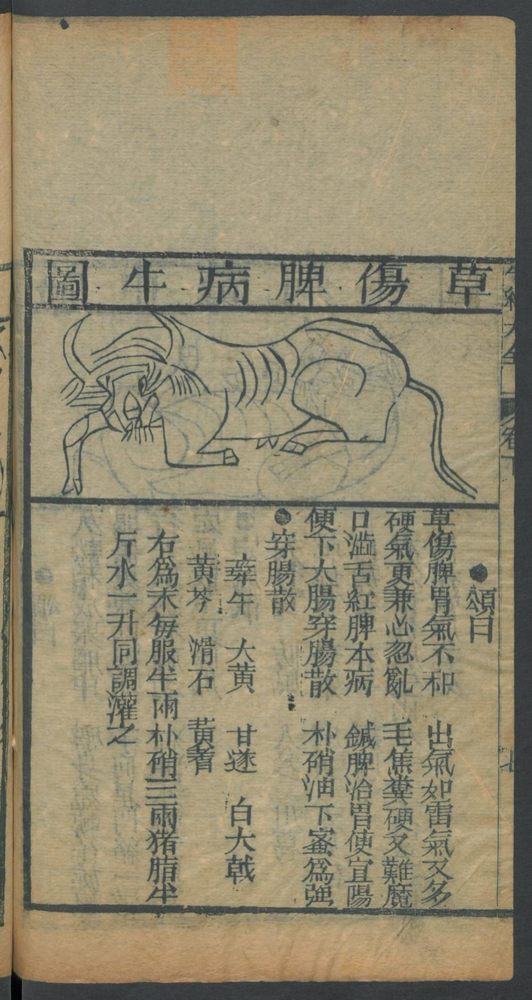 草傷脾病牛圖
頌曰
草傷脾胃氣不和　出氣如雷氣又多
硬氣更兼心忽亂　毛焦糞硬又難魔
口澁舌紅脾本病　鍼脾治胃使宜陽
便下大腸穿腸散　朴硝油下蜜為強
穿腸散
牽牛　大黃　甘遂　白大戟
黃芩　滑石　黃耆
右為末每服半兩朴硝三兩猪脂半
斤水一升同調灌之
七